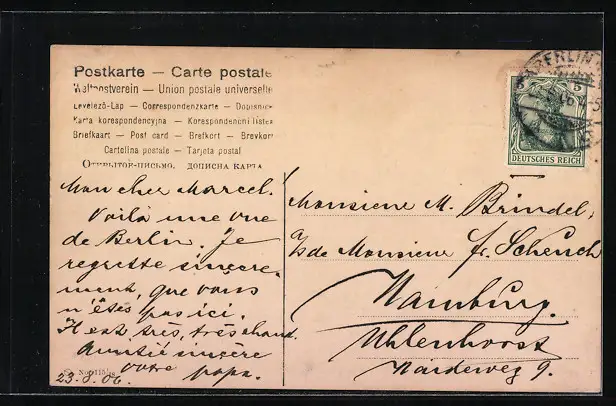 Postkarte — Carte postale
Weltpostverein — Union postale universelle
Levelező-Lap — Correspondenzkarte — Dopisnice
Karta korespondencyjna — Korespondenční listek
Briefkaart — Post card — Brefkort — Brevkort
Cartolina postale — Tarjeta postal
Открытое письмо. дописна карта
BERLIN
5 5
DEUTSCHES REICH
Mon cher Marcel.
Voilà une vue
de Berlin. Je
regrette sincère-
ment, que vous
n'êtes pas ici.
Il est très, très chaud.
Amitié sincère
votre papa.
23.8.06.
Monsieur M. Brindel,
a/s de Monsieur fr. Scheuch
Hamburg.
Uhlenhorst
Heideweg 9.